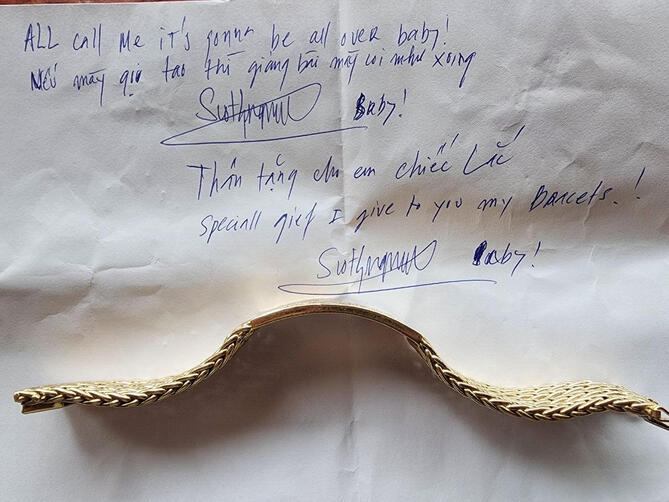 ALL call me it's gonna be all over baby!
Nếu mày gọi tao thì giang hồ mày coi như xong
Baby!
Thân tặng cho em chiếc Lắc
Speciall gief I give to you my Bracets.!
Baby!